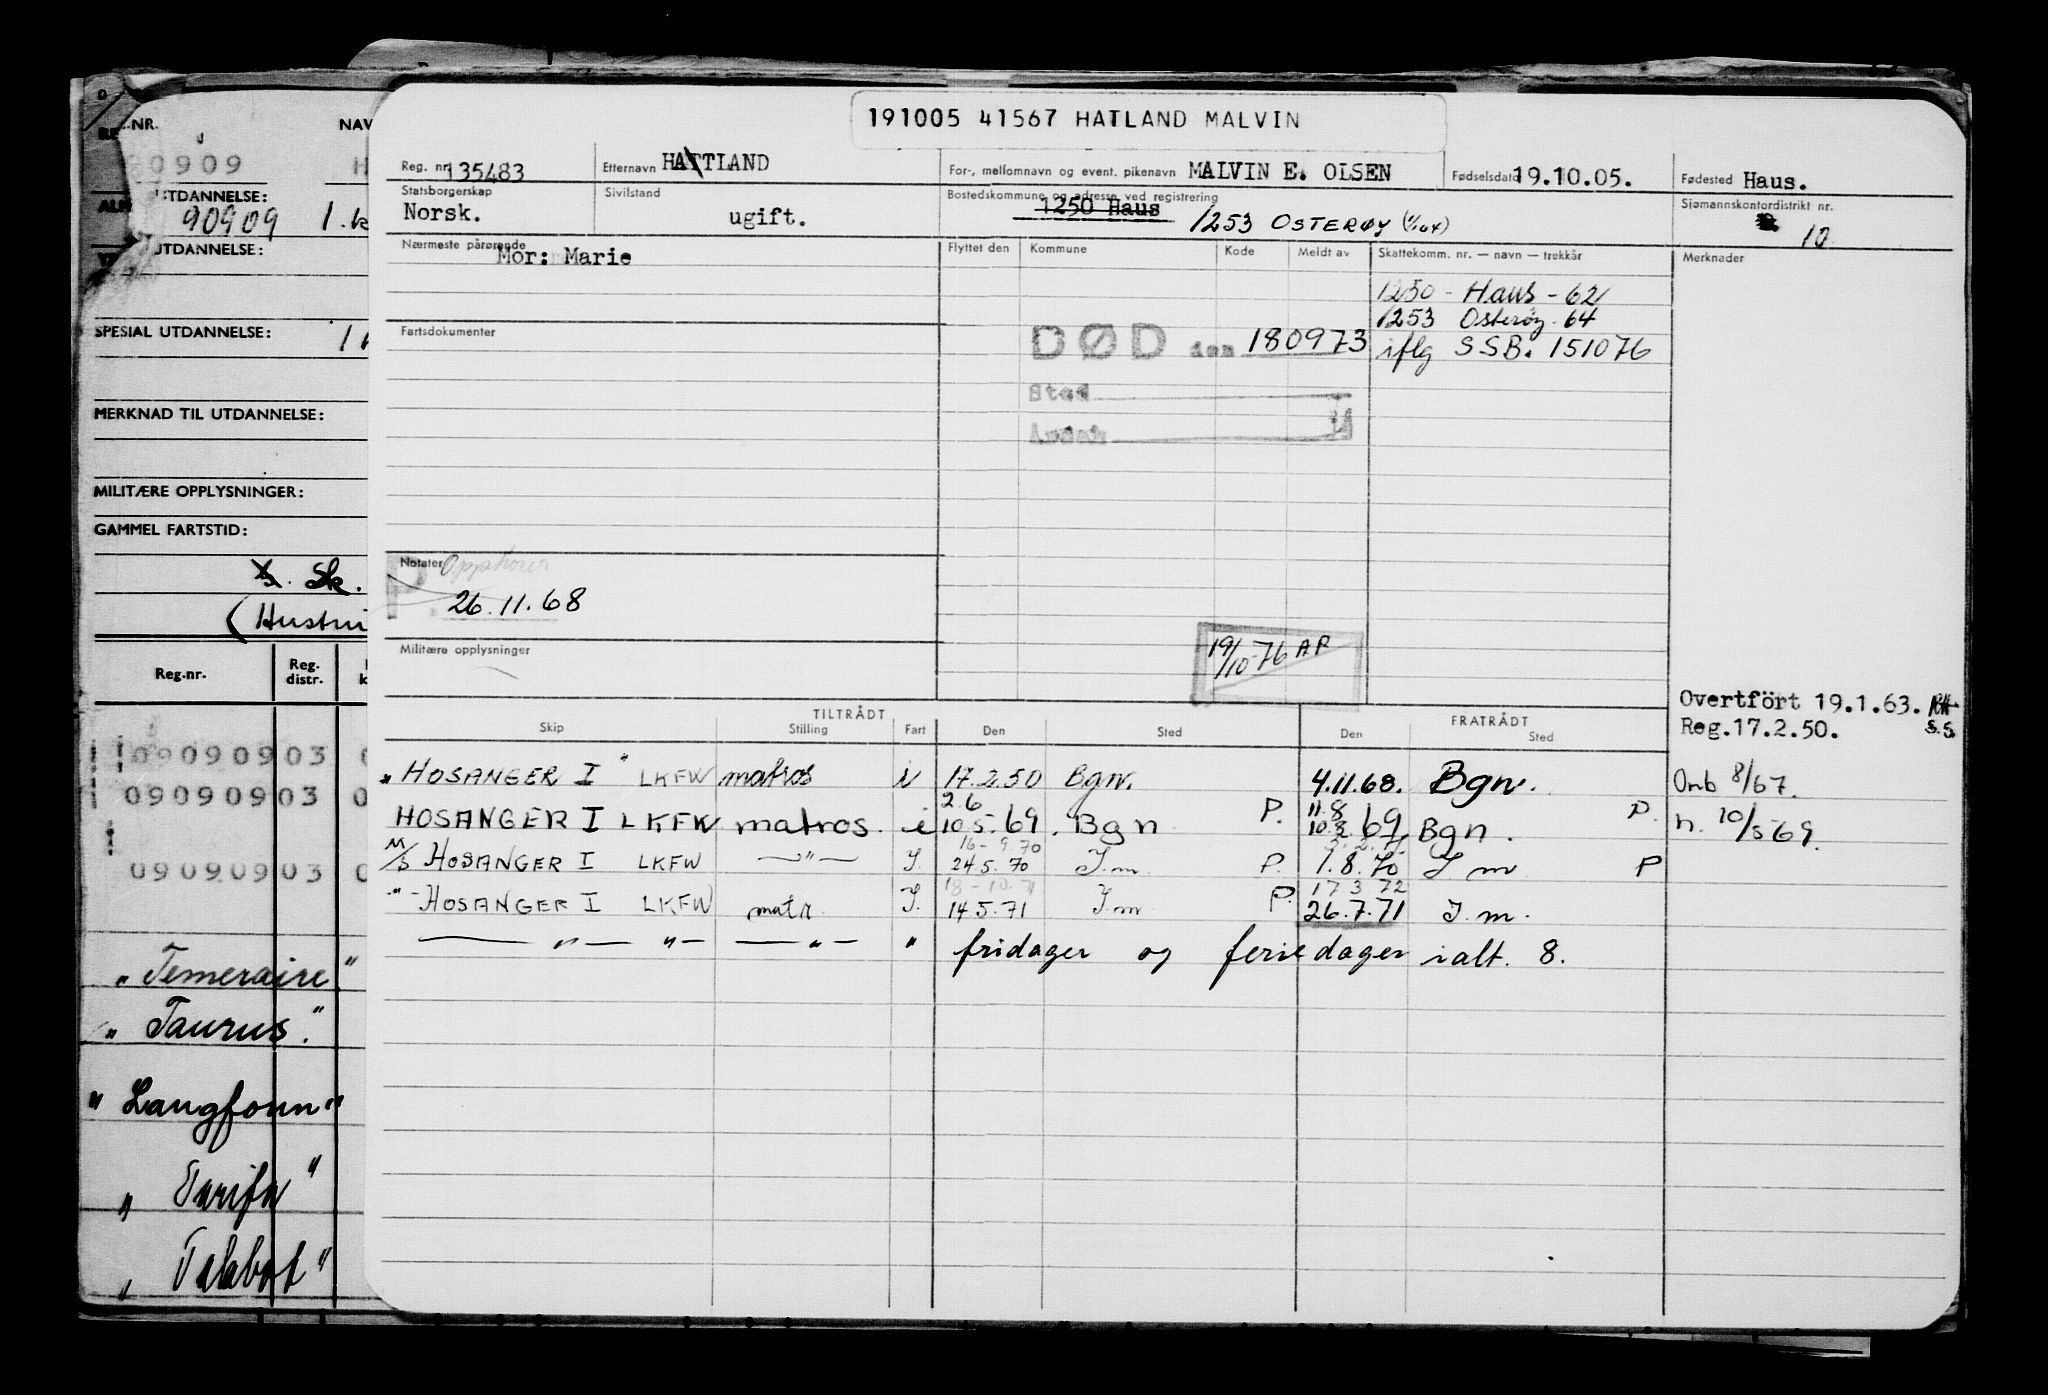 191005 41567 HATLAND MALVIN
Reg. nr. 135483 Etternavn HATTLAND For-, mellomnavn og event. pikenavn MALVIN E. OLSEN Fødselsdato 19.10.05. Fødested Haus.
Statsborgerskap Norsk. Sivilstand ugift. Bostedskommune og adresse ved registrering 1250 Haus 1253 OSTERØY (1/1 64) Sjømannskontordistrikt nr. 10
Nærmeste pårørende Mor: Marie Flyttet den Kommune Kode Meldt av Skattekomm. nr. — navn — trekkår Merknader
1250 - Haus - 62
1253 Osterøy - 64
Fartsdokumenter DØD den 180973 iflg SSB. 151076
Sted
Notater Opphører
P. 26.11.68
Militære opplysninger
19/10-76 AP
Overtfört 19.1.63.
Reg.17.2.50. S.S.
TILTRÅDT FRATRÅDT
Skip Stilling Fart Den Sted Den Sted
"HOSANGER I" LKFW matros i 17.2.50 Bgn. 4.11.68. Bgn. Omb 8/67.
2.6 11.8
HOSANGER I LKFW matros. i 10.5.69. Bgn P. 10.8.69 Bgn. P. n. 10/5 69.
16-9.70
M/S HOSANGER I LKFW —"— I. 24.5.70 I.m P. 1.8.70 I m P
18-10.71 17 3 72
-"- HOSANGER I LKFW matr I. 14.5.71 I.m P. 26.7.71 I.m.
—"— "— —"— " fridager og feriedager ialt. 8.
NR. NAV
90909 H
UTDANNELSE:
90909 1.k
UTDANNELSE:
SPESIAL UTDANNELSE:
MERKNAD TIL UTDANNELSE:
MILITÆRE OPPLYSNINGER:
GAMMEL FARTSTID:
Sk.
(Hustru
Reg.nr. Reg. distr.
09090903 0
09090903 0
09090903 0
"Temeraire"
"Taurus."
"Langfonn"
"Tarifa"
"Talabot"